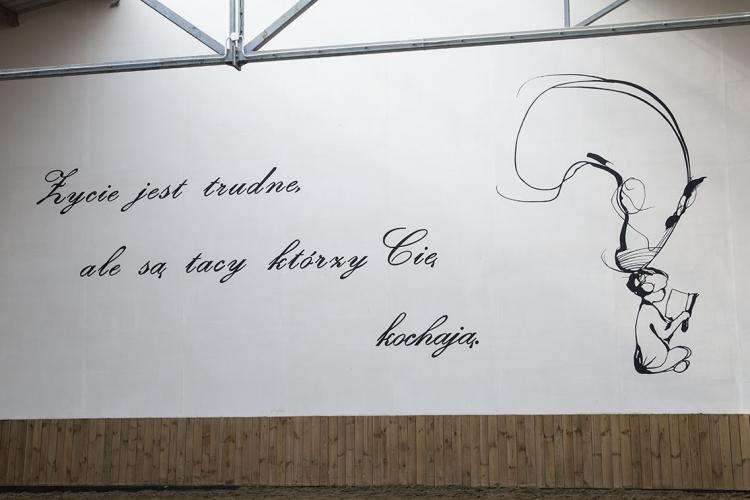 Życie jest trudne,
ale są tacy którzy Cię
kochają.